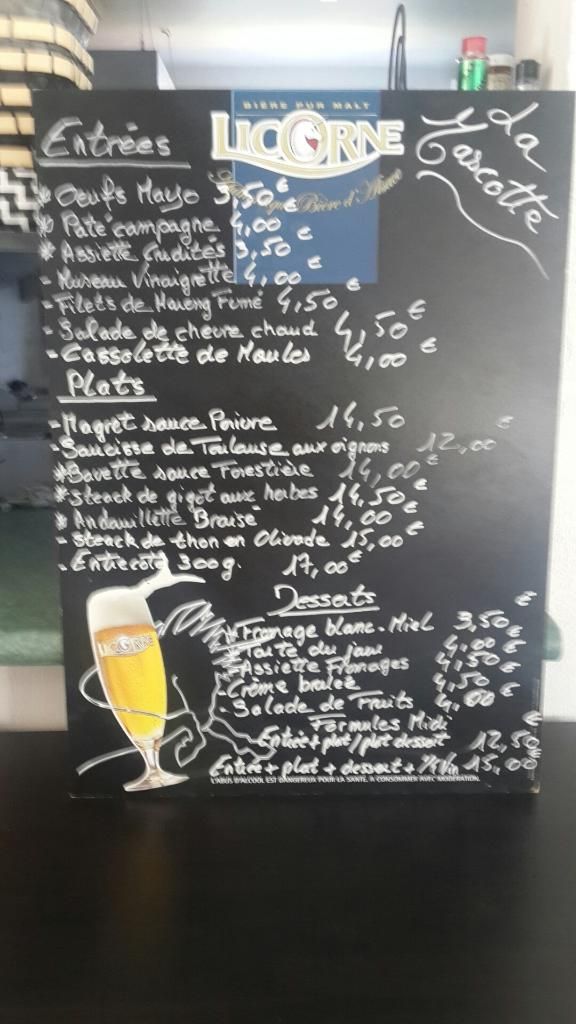 BIÈRE PUR MALT
LICORNE
La
Mascotte
Entrées
* Oeufs Mayo 3,50€
* Paté campagne 4,00€
* Assiette Crudités 3,50€
- Museau Vinaigrette 4,00€
- Filets de Hareng Fumé 4,50€
- Salade de chevre chaud 4,50€
- Cassolette de Moules 4,00€
Plats
- Magret sauce Poivre 14,50€
- Saucisse de Toulouse aux oignons 12,00€
* Bavette sauce Forestière 14,00€
* Steack de gigot aux herbes 14,50€
* Andouillette Braisé 14,00€
- Steack de thon en Olivade 15,00€
- Entrecote 300g. 17,00€
LICORNE
Desserts
* Fromage blanc - Miel 3,50€
* Tarte du jour 4,00€
* Assiette Fromages 4,50€
- Crème brulée 4,50€
- Salade de Fruits 4,00€
Formules Midi
Entrée + plat / plat dessert 12,50€
Entrée + plat + dessert + 1/4 Vin 15,00€
L'ABUS D'ALCOOL EST DANGEREUX POUR LA SANTÉ, À CONSOMMER AVEC MODÉRATION.